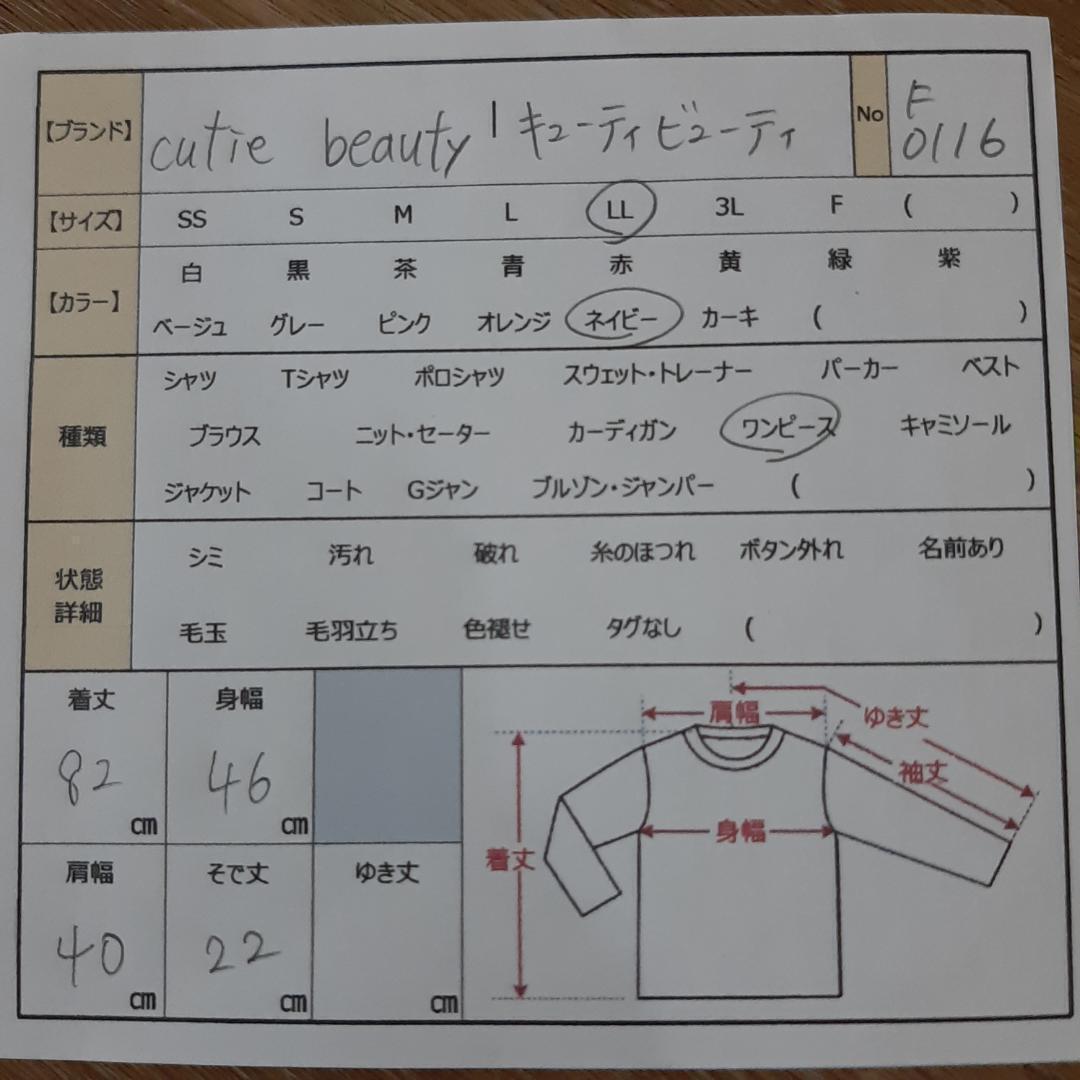 【ブランド】 cutie beauty | キューティビューティ No F 0116
【サイズ】 SS S M L LL 3L F ( )
【カラー】 白 黒 茶 青 赤 黄 緑 紫
ベージュ グレー ピンク オレンジ ネイビー カーキ ( )
種類 シャツ Tシャツ ポロシャツ スウェット・トレーナー パーカー ベスト
ブラウス ニット・セーター カーディガン ワンピース キャミソール
ジャケット コート Gジャン ブルゾン・ジャンパー ( )
状態詳細 シミ 汚れ 破れ 糸のほつれ ボタン外れ 名前あり
毛玉 毛羽立ち 色褪せ タグなし ( )
着丈 身幅
82 cm 46 cm
肩幅 そで丈 ゆき丈
40 cm 22 cm cm
肩幅 ゆき丈
袖丈
身幅
着丈